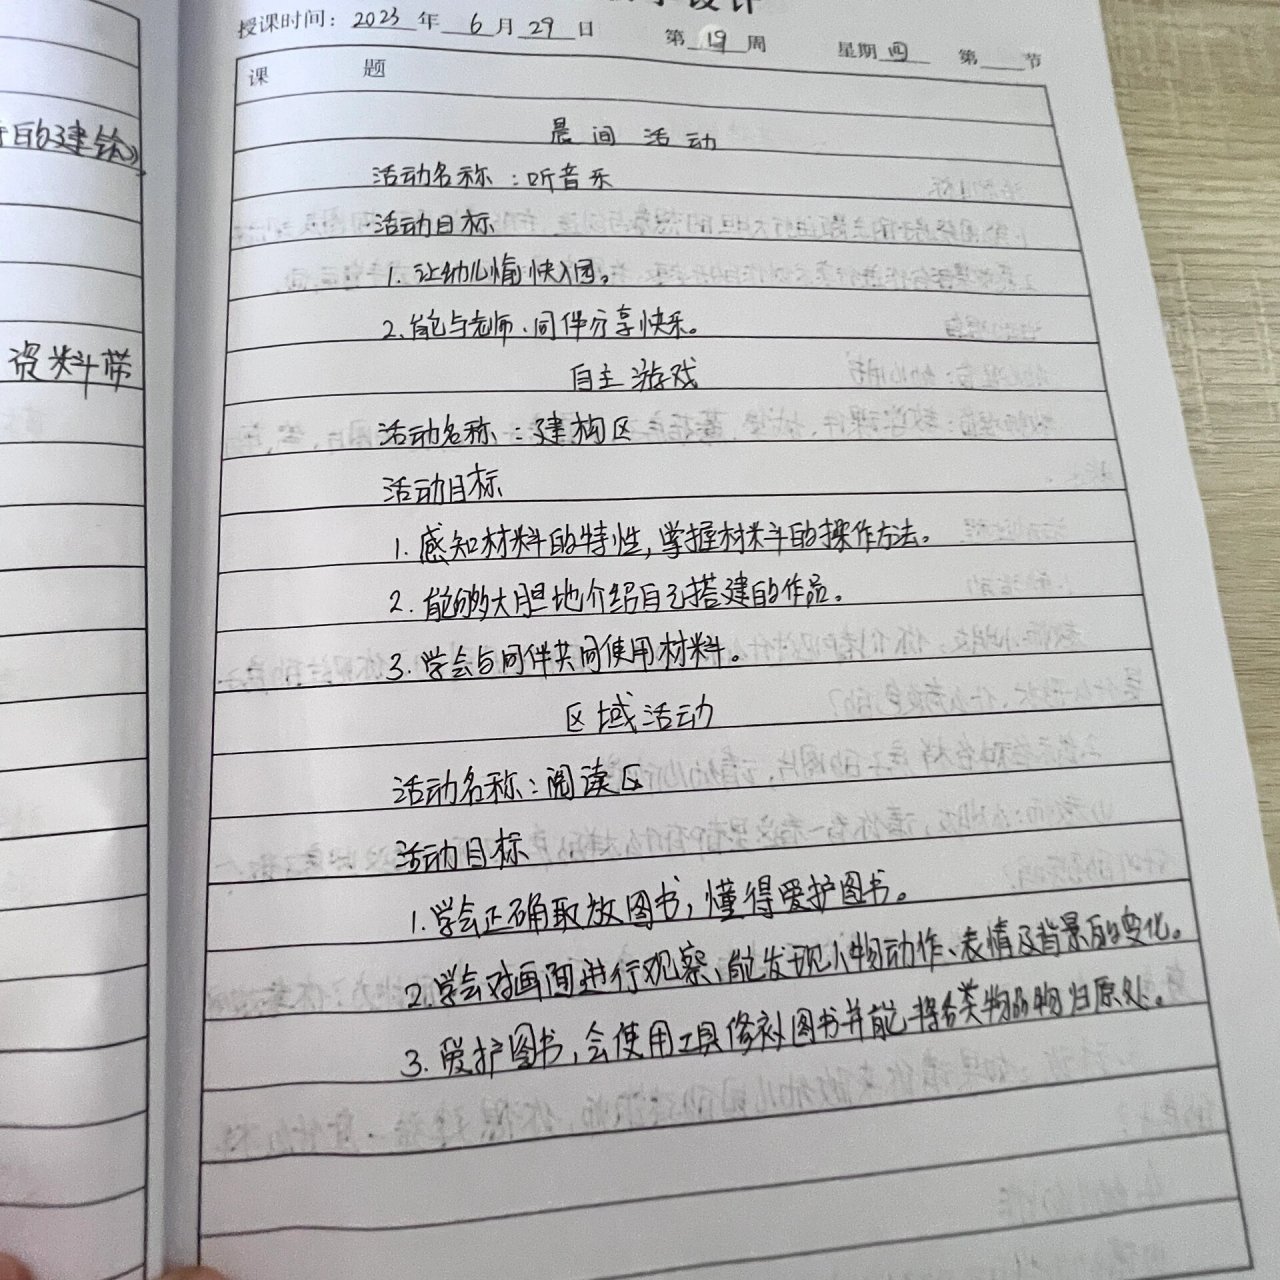 的建
资料带
设计
授课时间：2023年6月29日 第19周 星期四 第 节
课 题
晨间活动
活动名称：听音乐
活动目标
1. 让幼儿愉快入园。
2. 能与老师、同伴分享快乐。
自主游戏
活动名称：建构区
活动目标
1. 感知材料的特性,掌握材料的操作方法。
2. 能够大胆地介绍自己搭建的作品。
3. 学会与同伴共同使用材料。
区域活动
活动名称：阅读区
活动目标
1. 学会正确取放图书,懂得爱护图书。
2. 学会对画面进行观察、能发现人物动作、表情及背景后的变化。
3. 爱护图书,会使用工具修补图书并能将各类物品物归原处。